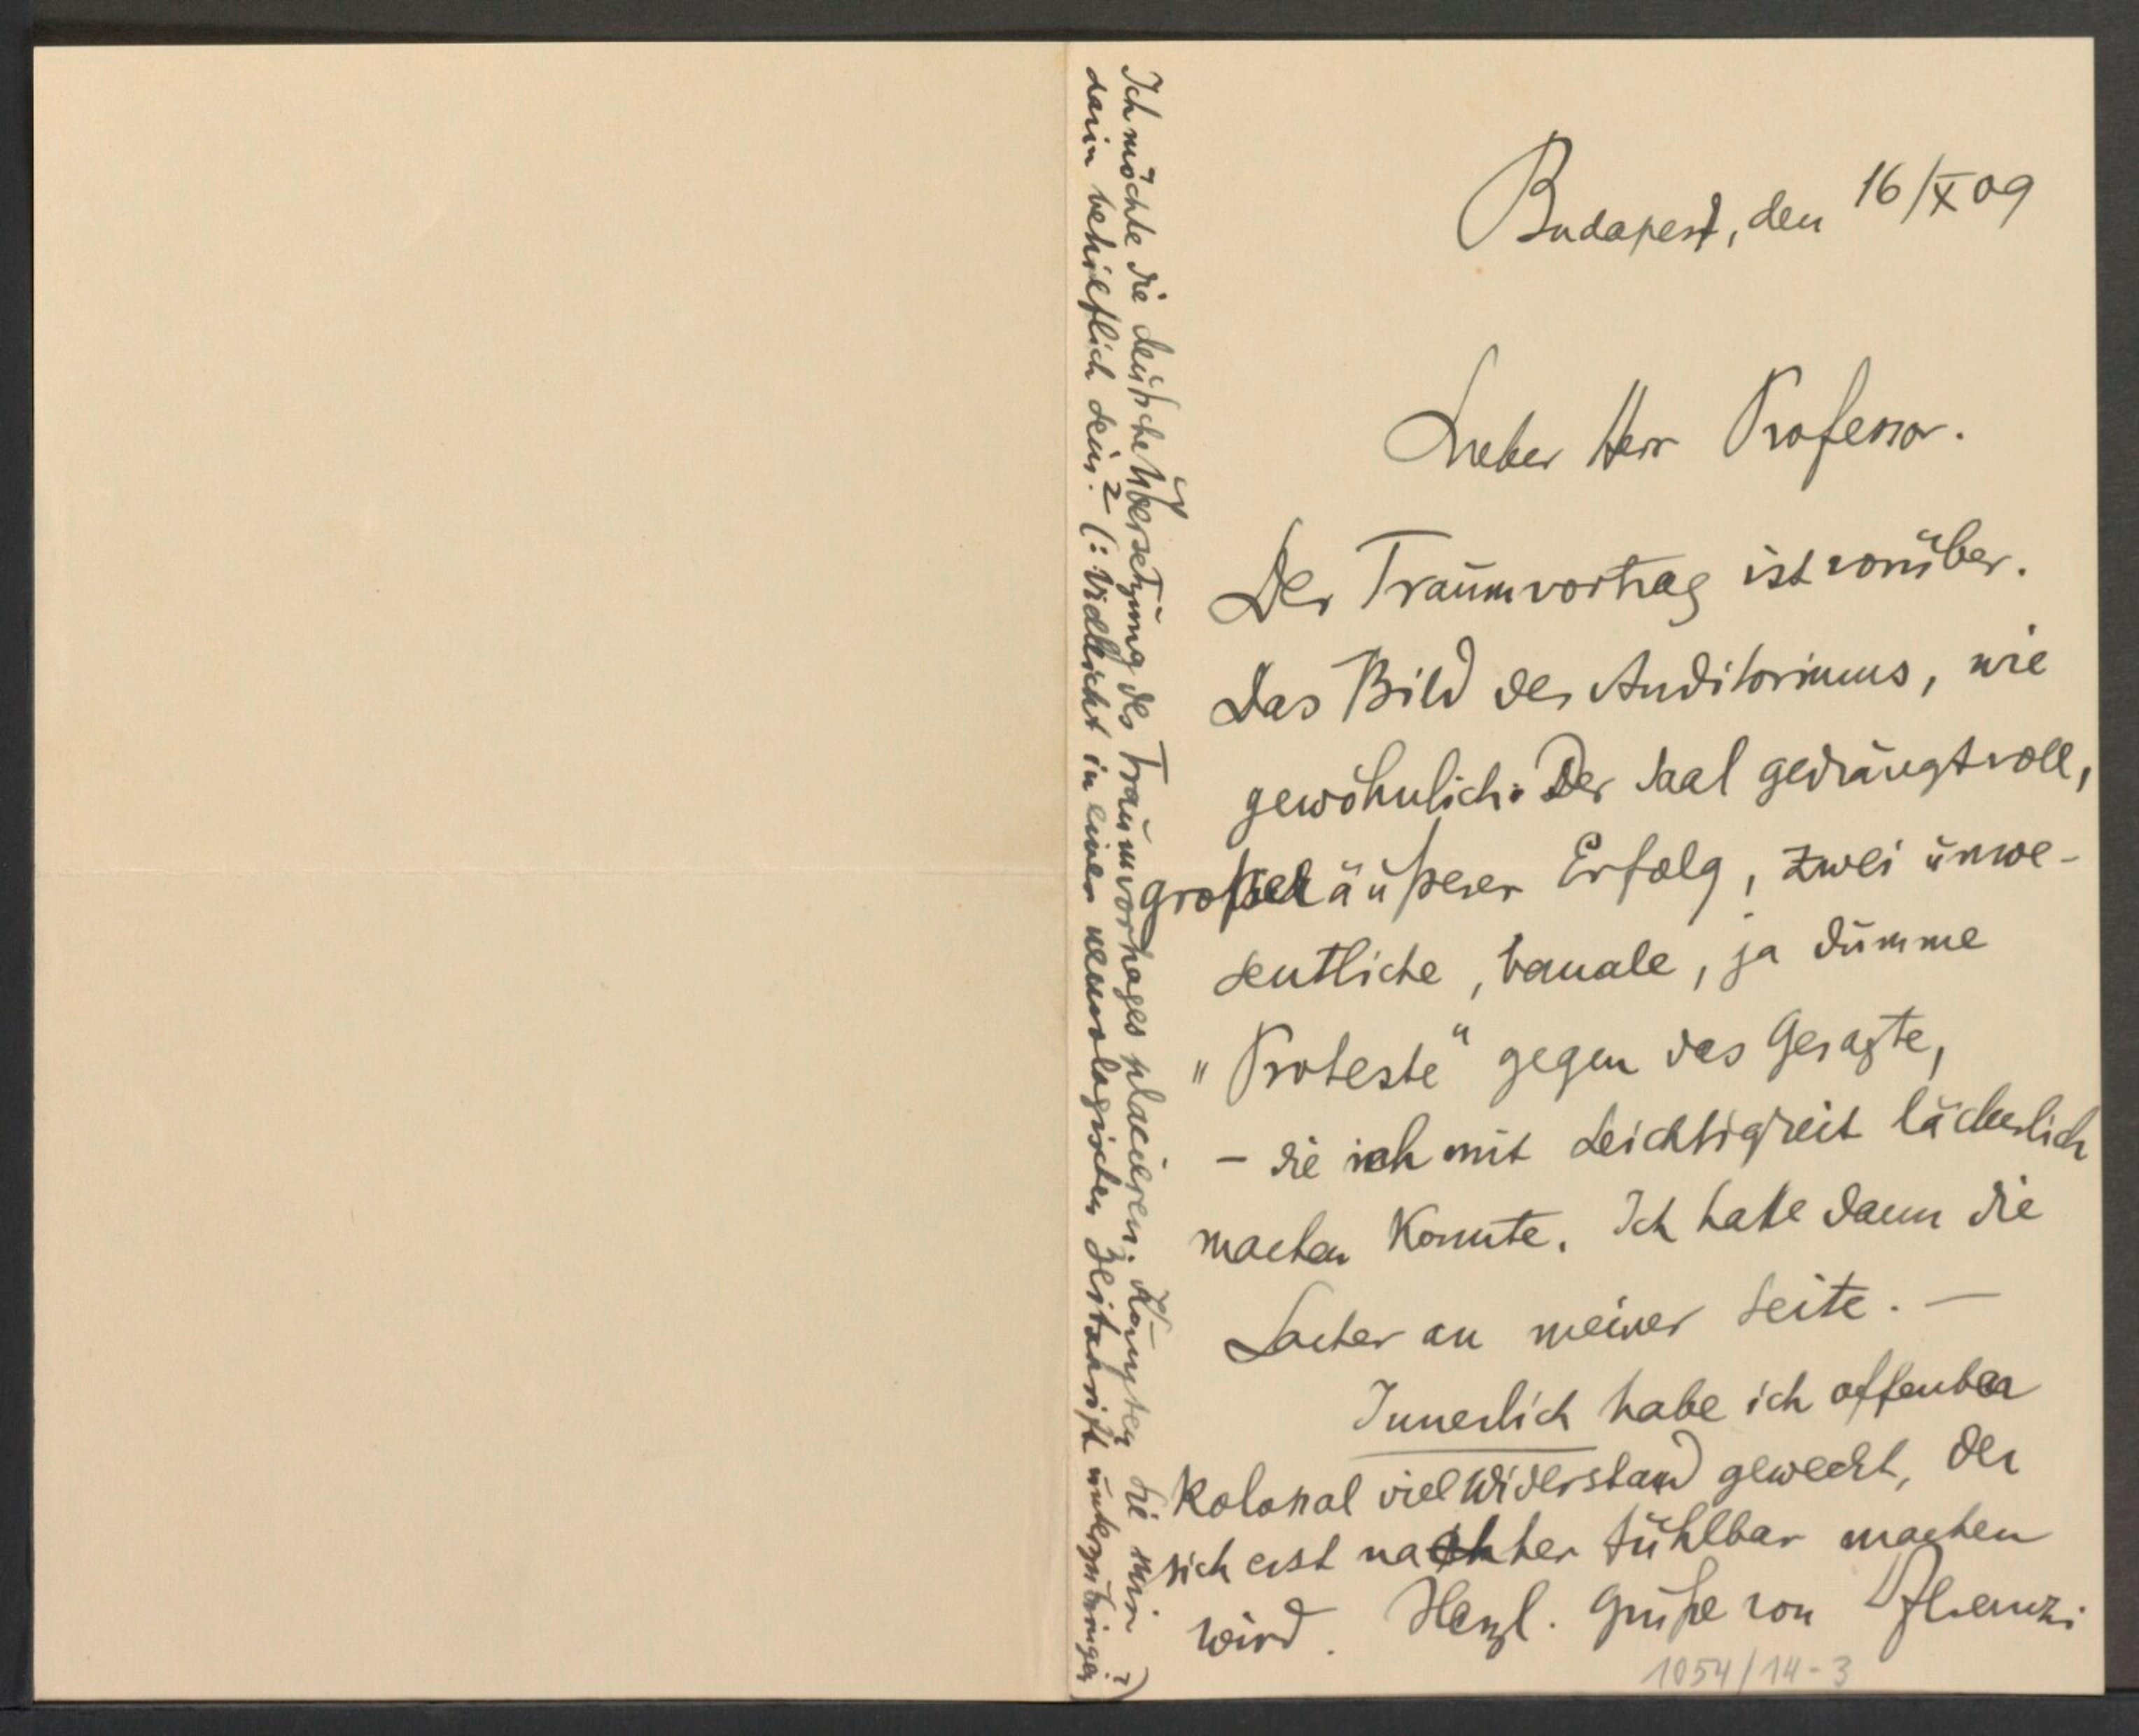 Budapest, den 16/X 09
Lieber Herr Professor.
Der Traumvortrag ist vorüber.
Das Bild des Auditoriums, wie
gewöhnlich: Der Saal gedrängt voll,
großer äußerer Erfolg, zwei unwe-
sentliche, banale, ja dumme
„Proteste“ gegen das Gesagte,
– die ich mit Leichtigkeit lächerlich
machen konnte. Ich hatte dann die
Lacher an meiner Seite. –
Innerlich habe ich offenbar
kolossal viel Widerstand geweckt, der
sich erst nachher fühlbar machen
wird. Herzl. Grüße von Ferenczi
1054/14-3
Ich möchte die deutsche Übersetzung des Traumvortrages placieren. Könnten Sie mir
darin behilflich sein? (: Vielleicht in einer neurologischen Zeitschrift unterzubringen?)